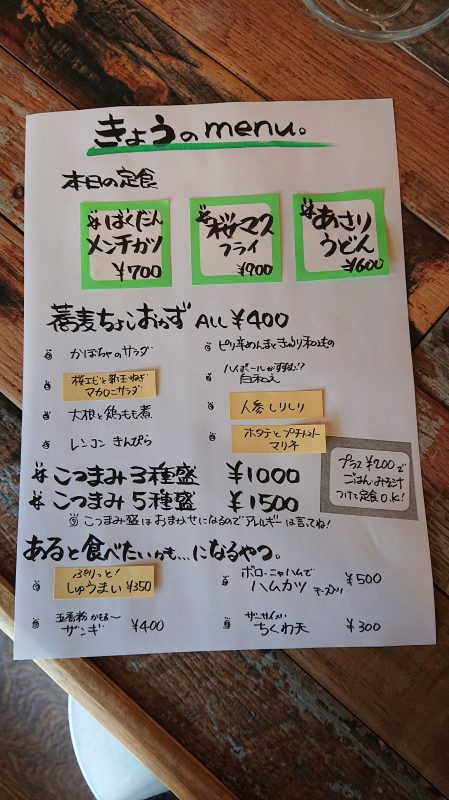 きょうのmenu。
本日の定食
ばくだん
メンチカツ
¥700
桜マス
フライ
¥900
あさり
うどん
¥600
蕎麦ちょいおかず ALL ¥400
かぼちゃのサラダ
桜エビと新玉ねぎ
マカロニサラダ
大根と鶏もも煮
レンコン きんぴら
ピリ辛めんまときゅうり和えもの
ハイボールがすすむ!?
白和え
人参しりしり
ホタテとプチトマト
マリネ
こつまみ3種盛 ¥1000
こつまみ5種盛 ¥1500
こつまみ盛はおまかせになるのでアレルギーは言ってね!
プラス¥200で
ごはん・みそ汁
つけて定食O.K!
あると食べたいかも…になるやつ。
ぷりっと!
しゅうまい ¥350
五香粉かおる〜
ザンギ ¥400
ボローニャハムで
ハムカツ チーズ入り ¥500
ザ・サイメい
ちくわ天 ¥300